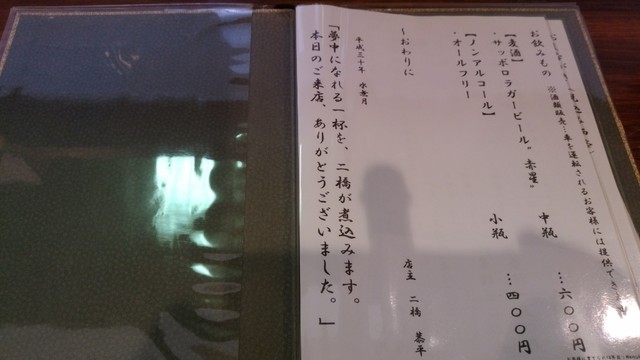 お飲みもの ※酒類販売…車を運転されるお客様には提供でき
【麦酒】
・サッポロラガービール“赤星” 中瓶 …六〇〇円
小瓶 …四〇〇円
【ノンアルコール】
・オールフリー
～おわりに
平成三十年 水無月
店主 二橋 恭平
「夢中になれる一杯を、二橋が煮込みます。
本日のご来店、ありがとうございました。」